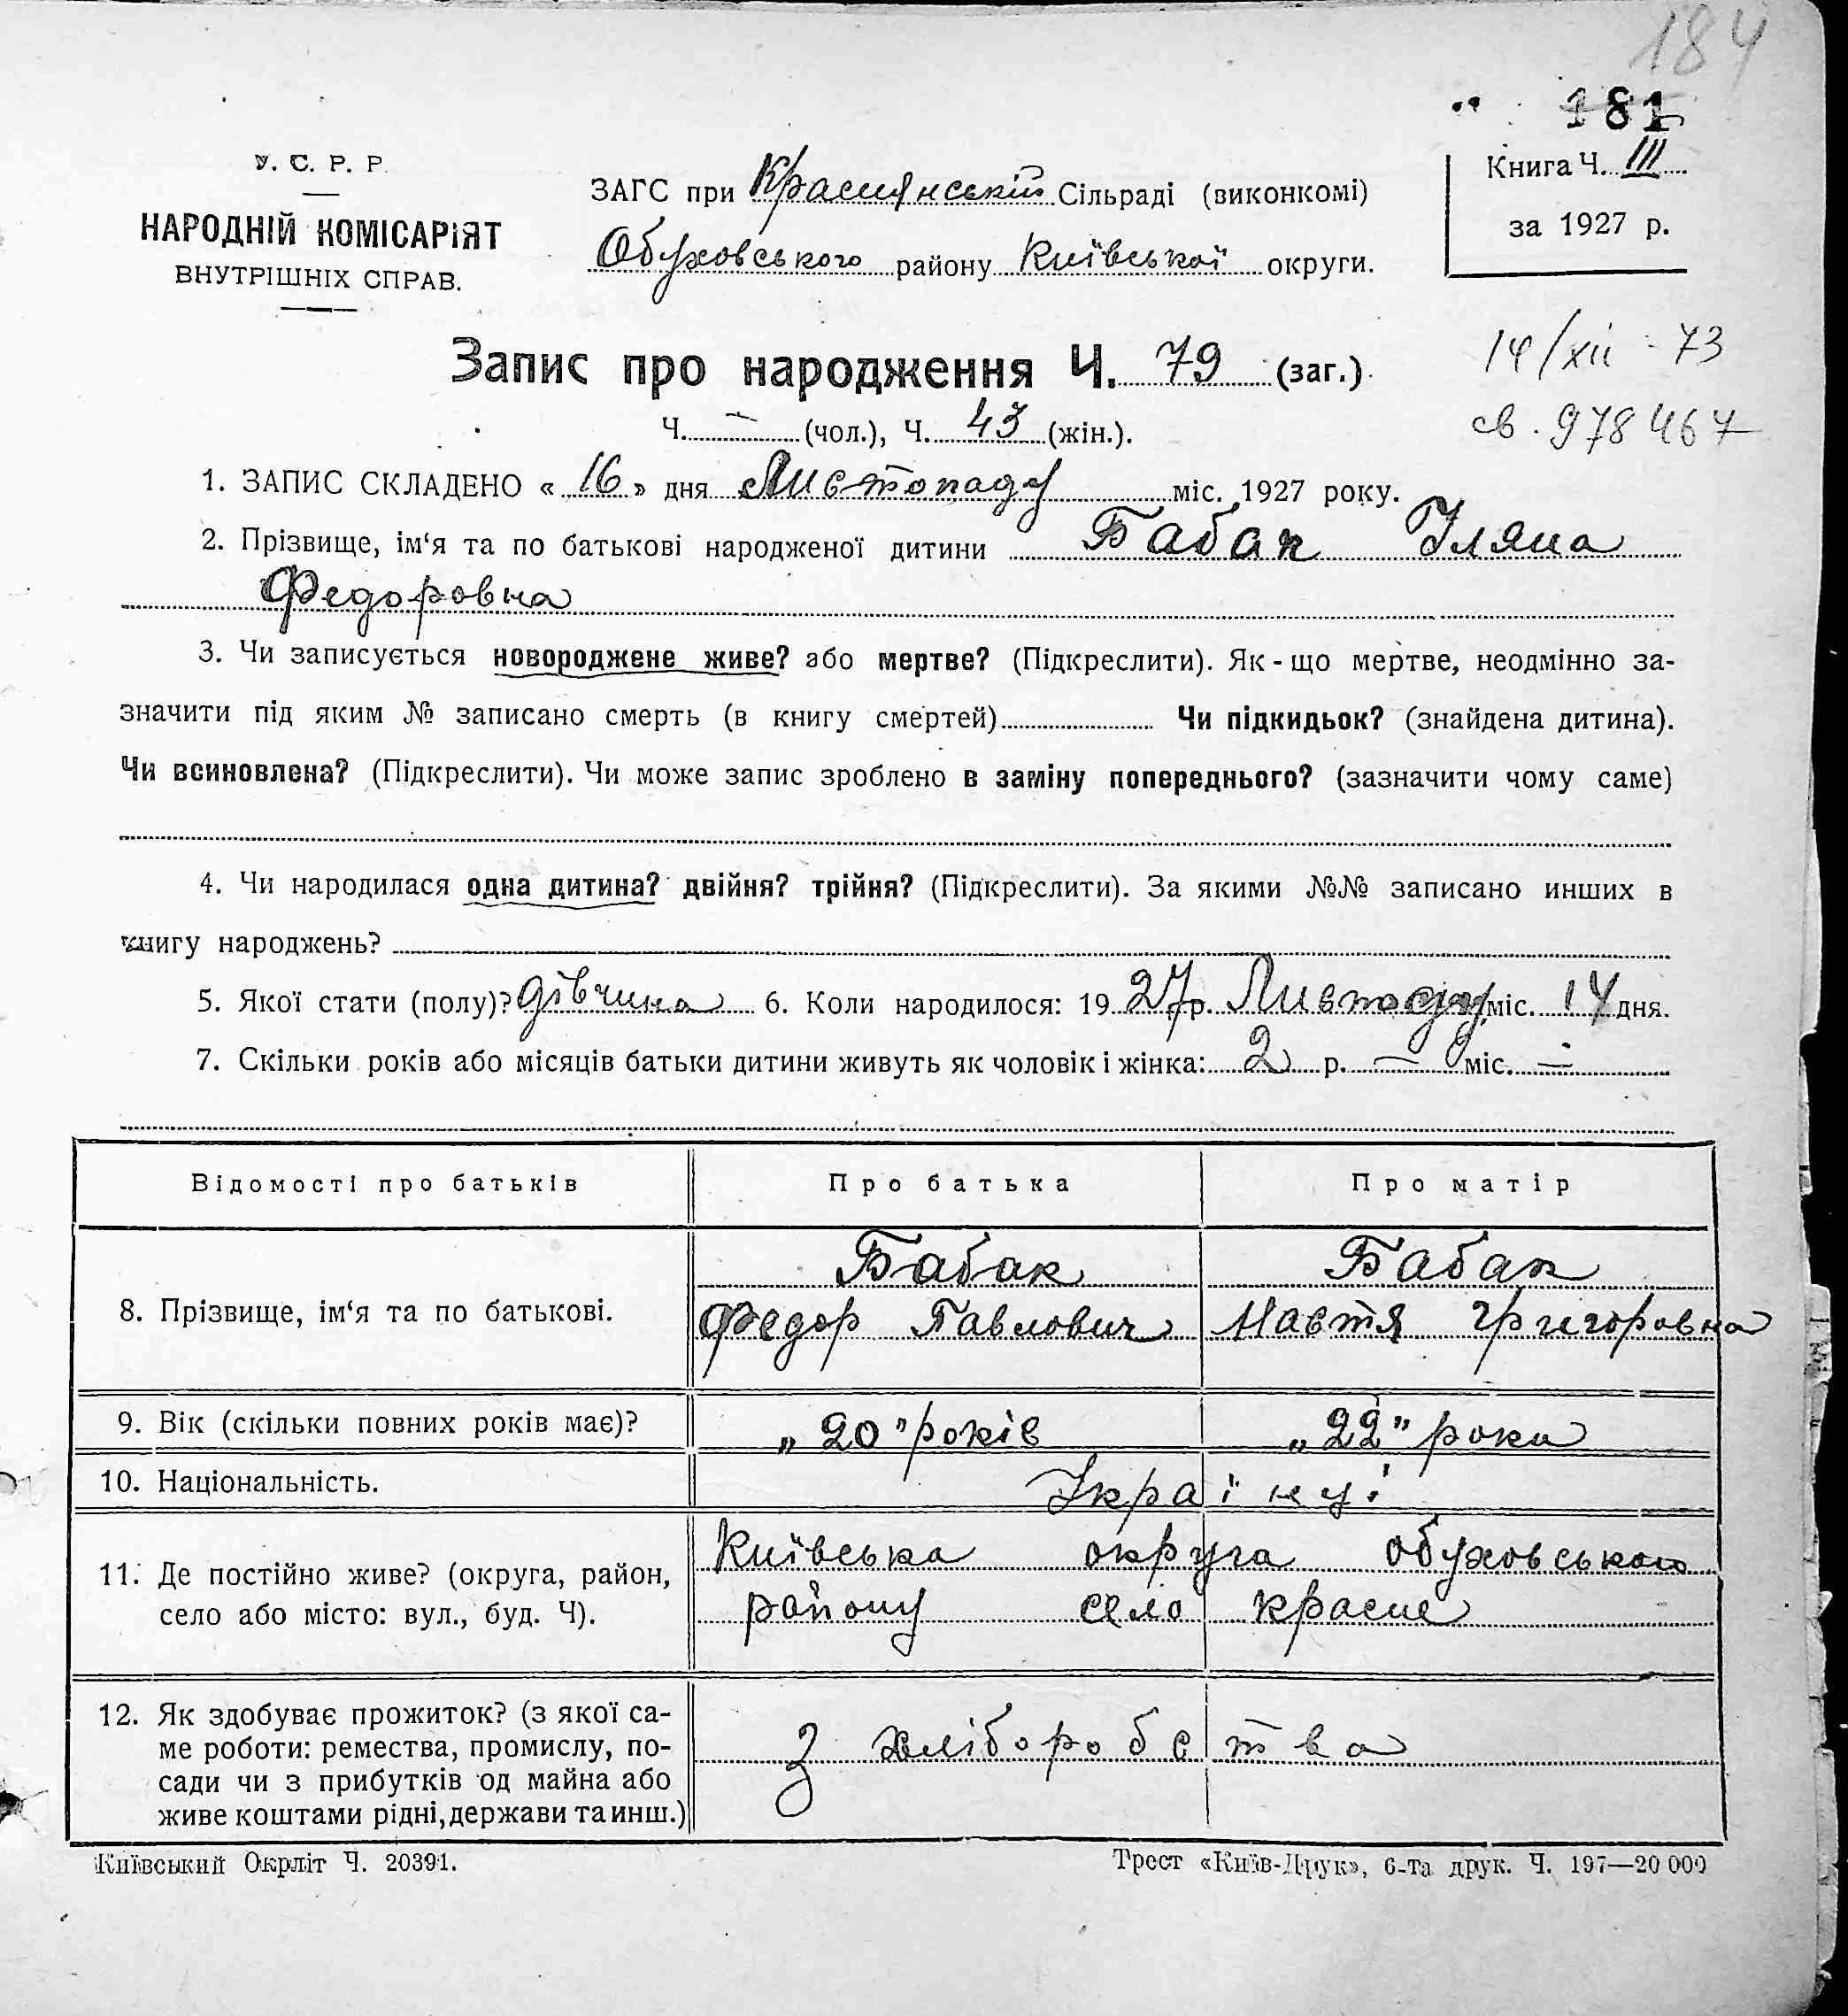 184
181
У. С. Р. Р.
НАРОДНІЙ КОМІСАРІЯТ
ВНУТРІШНІХ СПРАВ.
ЗАГС при Краснянській Сільраді (виконкомі)
Обуховського району Київської округи.
Книга Ч. III
за 1927 р.
Запис про народження Ч. 79 (заг.)
Ч. — (чол.), Ч. 43 (жін.).
14/XII - 73
св. 978467
1. ЗАПИС СКЛАДЕНО « 16 » дня Листопаду міс. 1927 року.
2. Прізвище, ім‘я та по батькові народженої дитини Бабак Уляна
Федоровна
3. Чи записується новороджене живе? або мертве? (Підкреслити). Як - що мертве, неодмінно за-
значити під яким № записано смерть (в книгу смертей) Чи підкидьок? (знайдена дитина).
Чи всиновлена? (Підкреслити). Чи може запис зроблено в заміну попереднього? (зазначити чому саме)
4. Чи народилася одна дитина? двійня? трійня? (Підкреслити). За якими №№ записано инших в
книгу народжень?
5. Якої стати (полу)? дівчина 6. Коли народилося: 19 27 р. Листопаду міс. 14 дня.
7. Скільки років або місяців батьки дитини живуть як чоловік і жінка: 2 р. — міс. —
Відомості про батьків Про батька Про матір
8. Прізвище, ім‘я та по батькові.
Бабак Бабак
Федор Павлович Настя Григоровна
9. Вік (скільки повних років має)? „20" років „22" роки
10. Національність. Українці
11. Де постійно живе? (округа, район,
село або місто: вул., буд. Ч).
Київська округа обуховського
району село красне
12. Як здобуває прожиток? (з якої са-
ме роботи: ремества, промислу, по-
сади чи з прибутків од майна або
живе коштами рідні, держави та инш.)
З хліборобства
Київський Окрліт Ч. 20391.
Трест «Київ-Друк», 6-та друк. Ч. 197—20 000